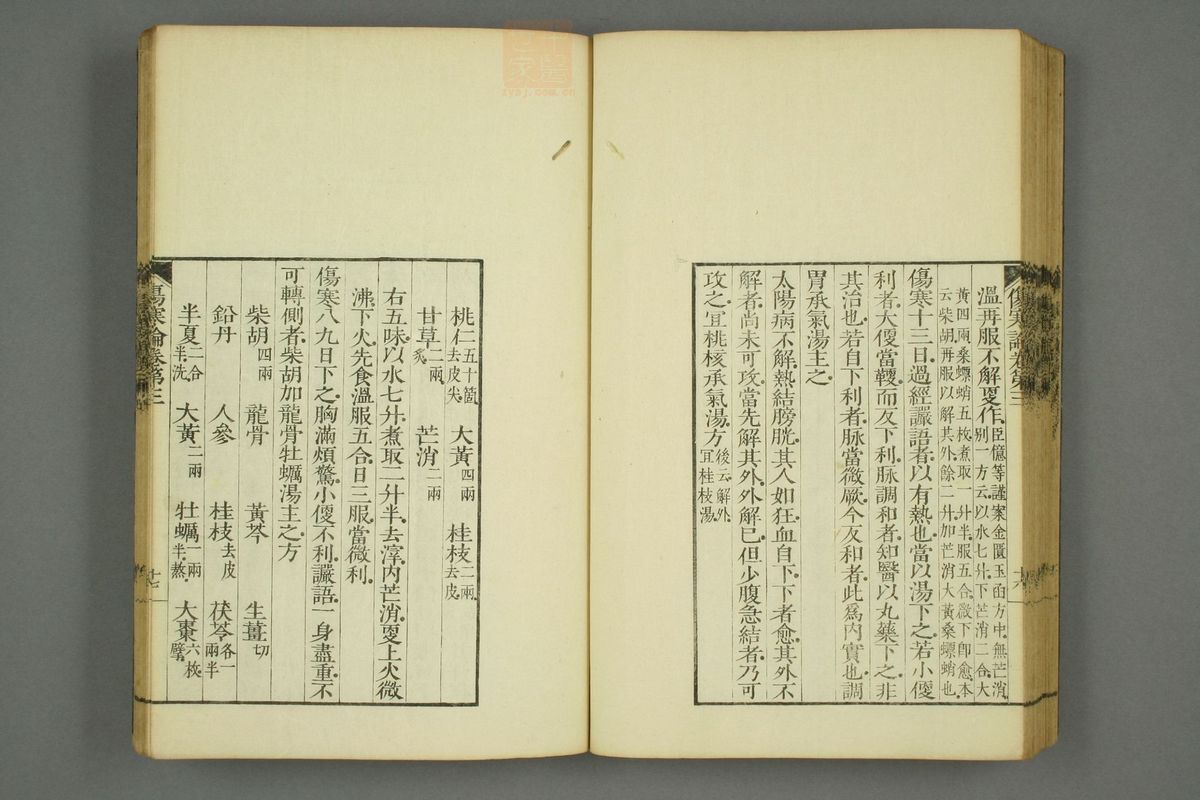 溫再服不解更作臣億等謹案金匱玉函方中無芒消
別一方云以水七升下芒消二合大
黃四兩桑螵蛸五枚煮取一升半服五合微下即愈本
云柴胡再服以解其外餘二升加芒消大黃桑螵蛸也
傷寒十三日過經讝語者以有熱也當以湯下之若小便
利者大便當鞕而反下利脉調和者知醫以丸藥下之非
其治也若自下利者脉當微厥今反和者此爲內實也調
胃承氣湯主之
太陽病不解熱結膀胱其人如狂血自下下者愈其外不
解者尚未可攻當先解其外外解已但少腹急結者乃可
攻之宜桃核承氣湯方後云解外
宜桂枝湯
傷寒論卷第三
十六
桃仁五十箇
去皮尖 大黃四兩 桂枝二兩
去皮
甘草二兩
炙 芒消二兩
右五味以水七升煮取二升半去滓內芒消更上火微
沸下火先食溫服五合日三服當微利
傷寒八九日下之胸滿煩驚小便不利讝語一身盡重不
可轉側者柴胡加龍骨牡蠣湯主之方
柴胡四兩 龍骨 黃芩 生薑切
鉛丹 人參 桂枝去皮 茯苓各一
兩半
半夏二合
半洗 大黃二兩 牡蠣一兩
半熬 大棗六枚
擘
傷寒論卷第三
十七
中醫
之家
zysj.com.cn